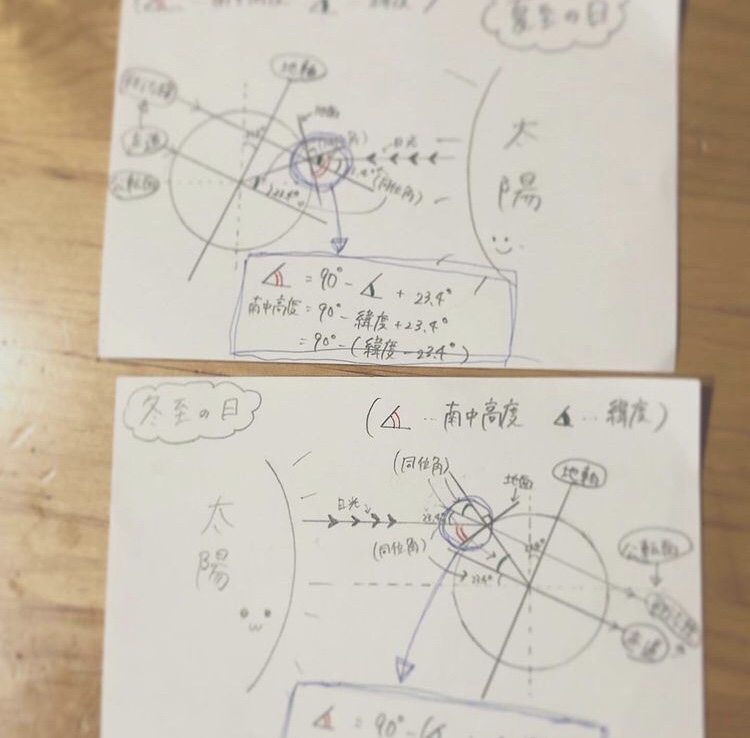 夏至の日
地軸
地面
日光
赤道
公転面
23.4°
(同位角)
太陽
= 90° - + 23.4°
南中高度 = 90° - 緯度 + 23.4°
= 90° - (緯度 - 23.4°)
冬至の日
( … 南中高度 … 緯度)
(同位角)
地面
地軸
太陽
日光
23.4°
(同位角)
23.4°
公転面
赤道
= 90° - (